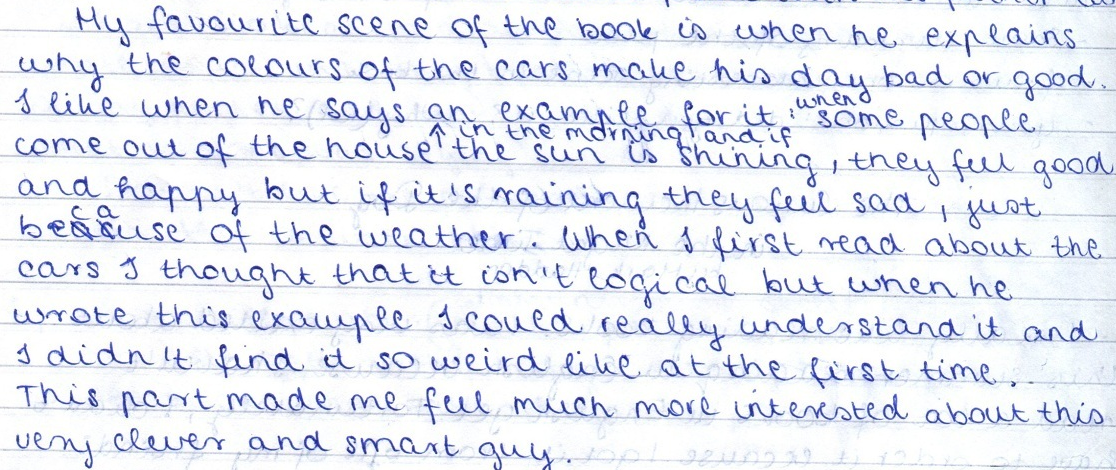 My favourite scene of the book is when he explains
why the colours of the cars make his day bad or good.
I like when he says an example for it: when some people
come out of the house in the morning and if the sun is shining, they feel good
and happy but if it's raining they feel sad, just
because of the weather. When I first read about the
cars I thought that it isn't logical but when he
wrote this example I could really understand it and
I didn't find it so weird like at the first time.
This part made me feel much more interested about this
very clever and smart guy.